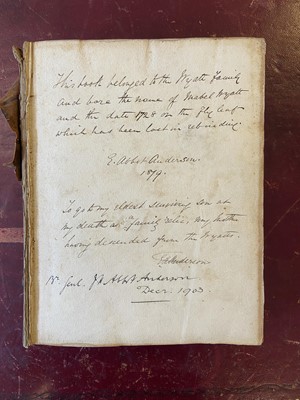 This book belonged to the Wyatt Family
and bore the name of Mabel Wyatt
and the date 1724 on the fly leaf
which had been lost in rebinding.
E. Abbot Anderson.
1879.
To go to my eldest surviving son on
my death as "family relic" my mother
having descended from the Wyatts.
Anderson
Genl. Abbot Anderson
Decr. 1903